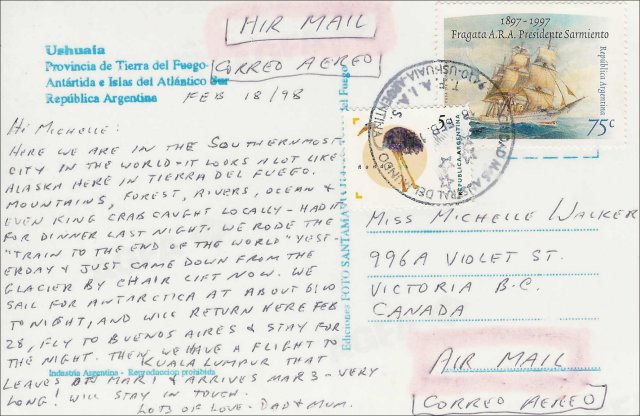 AIR MAIL
CORREO AEREO
Ushuaia
Provincia de Tierra del Fuego
Antártida e Islas del Atlántico Sur
República Argentina
FEB 18/98
Hi Michelle:
HERE WE ARE IN THE SOUTHERNMOST
CITY IN THE WORLD - IT LOOKS A LOT LIKE
ALASKA HERE IN TIERRA DEL FUEGO.
MOUNTAINS, FOREST, RIVERS, OCEAN &
EVEN KING CRAB CAUGHT LOCALLY - HAD IT
FOR DINNER LAST NIGHT. WE RODE THE
"TRAIN TO THE END OF THE WORLD" YEST-
ERDAY & JUST CAME DOWN FROM THE
GLACIER BY CHAIR LIFT NOW. WE
SAIL FOR ANTARCTICA AT ABOUT 6:00
TONIGHT, AND WILL RETURN HERE FEB
28, FLY TO BUENOS AIRES & STAY FOR
THE NIGHT. THEN WE HAVE A FLIGHT TO
KUALA LUMPUR THAT
LEAVES ON MAR 1 & ARRIVES MAR 3 - VERY
LONG! WILL STAY IN TOUCH.
LOTS OF LOVE - DAD & MUM.
Industria Argentina - Reproducción prohibida
Ediciones FOTO SANTAMARIA
del Fuego
1897-1997
Fragata A.R.A. Presidente Sarmiento
República Argentina
75c
5c
REPUBLICA ARGENTINA
USHUAIA
FEB
MISS MICHELLE WALKER
996A VIOLET ST.
VICTORIA B.C.
CANADA
AIR MAIL
CORREO AEREO